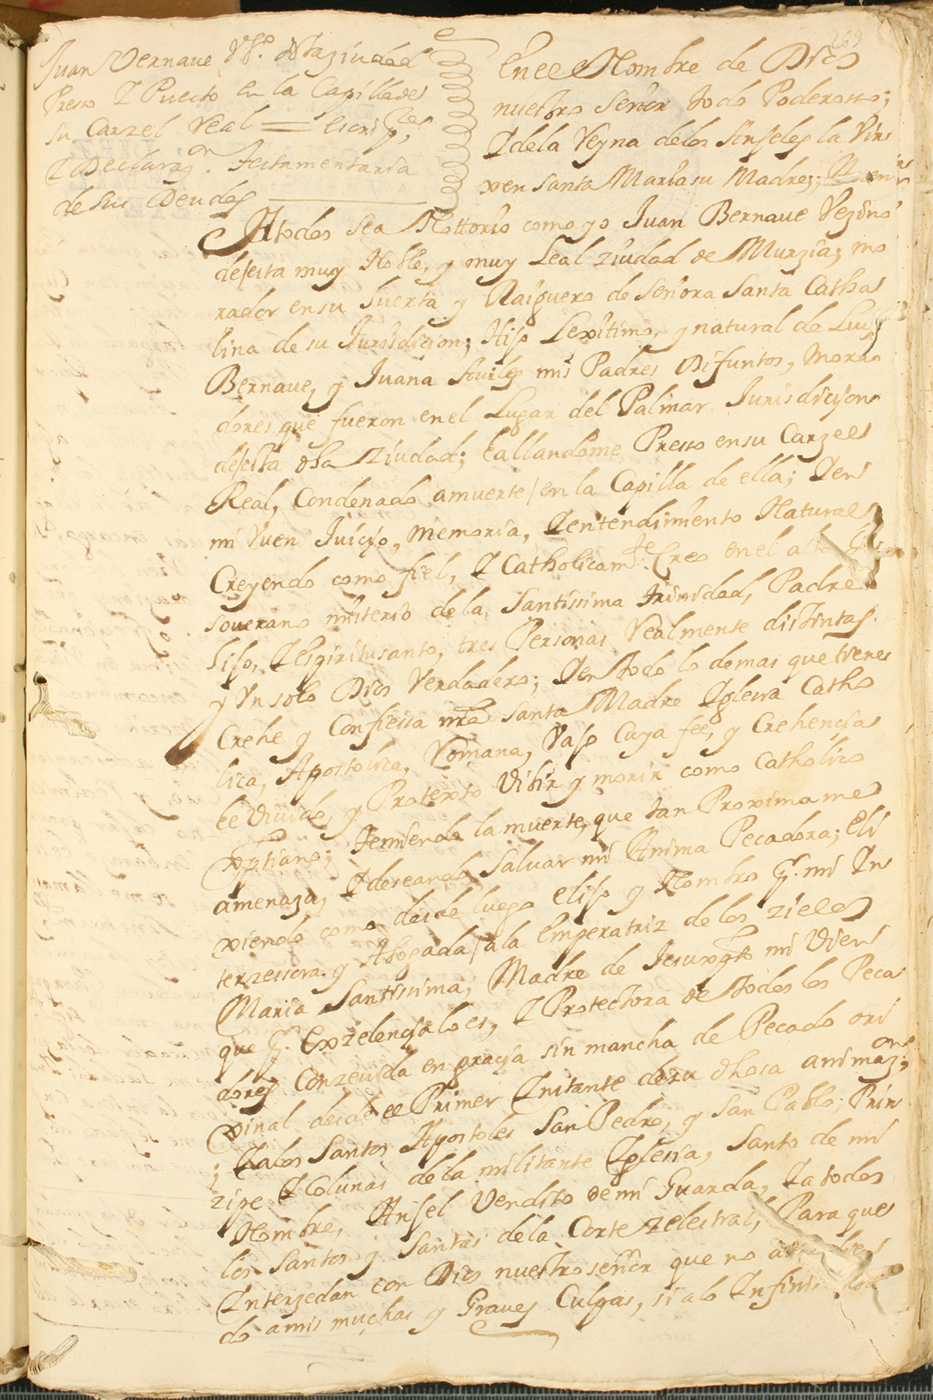 Juan Vernaue Vº. desta ziudad
Presso I Puesto en la Capilla de
su Carzel Real = Escrip
I Declarazon. Testamentaria
de sus Deudas
269
En el Nombre de Dios
nuestro señor todo Poderosso;
I dela Reyna delos Anjeles la Vir
xen santa Maria su Madre; Amen
A todos sea Nottorio como yo Juan Bernaue Vezino
desta muy Noble, y muy Leal ziudad de Murzia; mo
rador en su huerta y Raiguero de señora santa Catha
lina de su Jurisdizion; Hijo Lexitimo, y natural de Luis
Bernaue, y Juana Auiles mis Padres Difuntos, Mora
dores que fueron en el Lugar del Palmar Jurisdicion
desta dha ziudad; hallandome Presso en su Carzel
Real, Condenado amuerte / en la Capilla de ella; I en
mi buen Juicio, Memoria, I entendimiento Natural
Creyendo como fiel, I Catholicamte Creo en el alto I
souerano misterio dela santissima trinidad, Padre
hijo, I espiritusanto, tres Personas Realmente distintas.
y Vn solo Dios Verdadero; I en todo lo demas que tiene
Crehe y Confiessa nra santa Madre Iglesia Catho
lica, Apostolica, Romana, Vajo Cuya fee, y Crehencia
he viuido, y Protexto Viuir y morir como Catholico
Xptiano; temiendo la muerte, que tan Proxima me
amenaza, I deseando saluar mi Anima Pecadora; Eli
xiendo como desde luego elijo y Nombro Pr. mi In
terzessora y Abogada / a la Emperatriz de los zielos
Maria Santissima, Madre de Jesuxpto mi vien
que Pr. Exzelencia lo es, I Protectora de todos los Peca
dores Conzeuida en gracia sin mancha de Pecado ori
xinal desde el Primer Instante de su dhosa animazon;
I alos Santos Apostoles San Pedro, y San Pablo; Prin
zipe I Colunas dela militante Iglesia, Santo de mi
Nombre, Anjel Vendito de mi Guarda, I a todos
los Santos y Santas dela Corte zelestial, Para que
Interzedan con Dios nuestro señor que no
do amis muchas y Graues Culpas, si alo Infinito